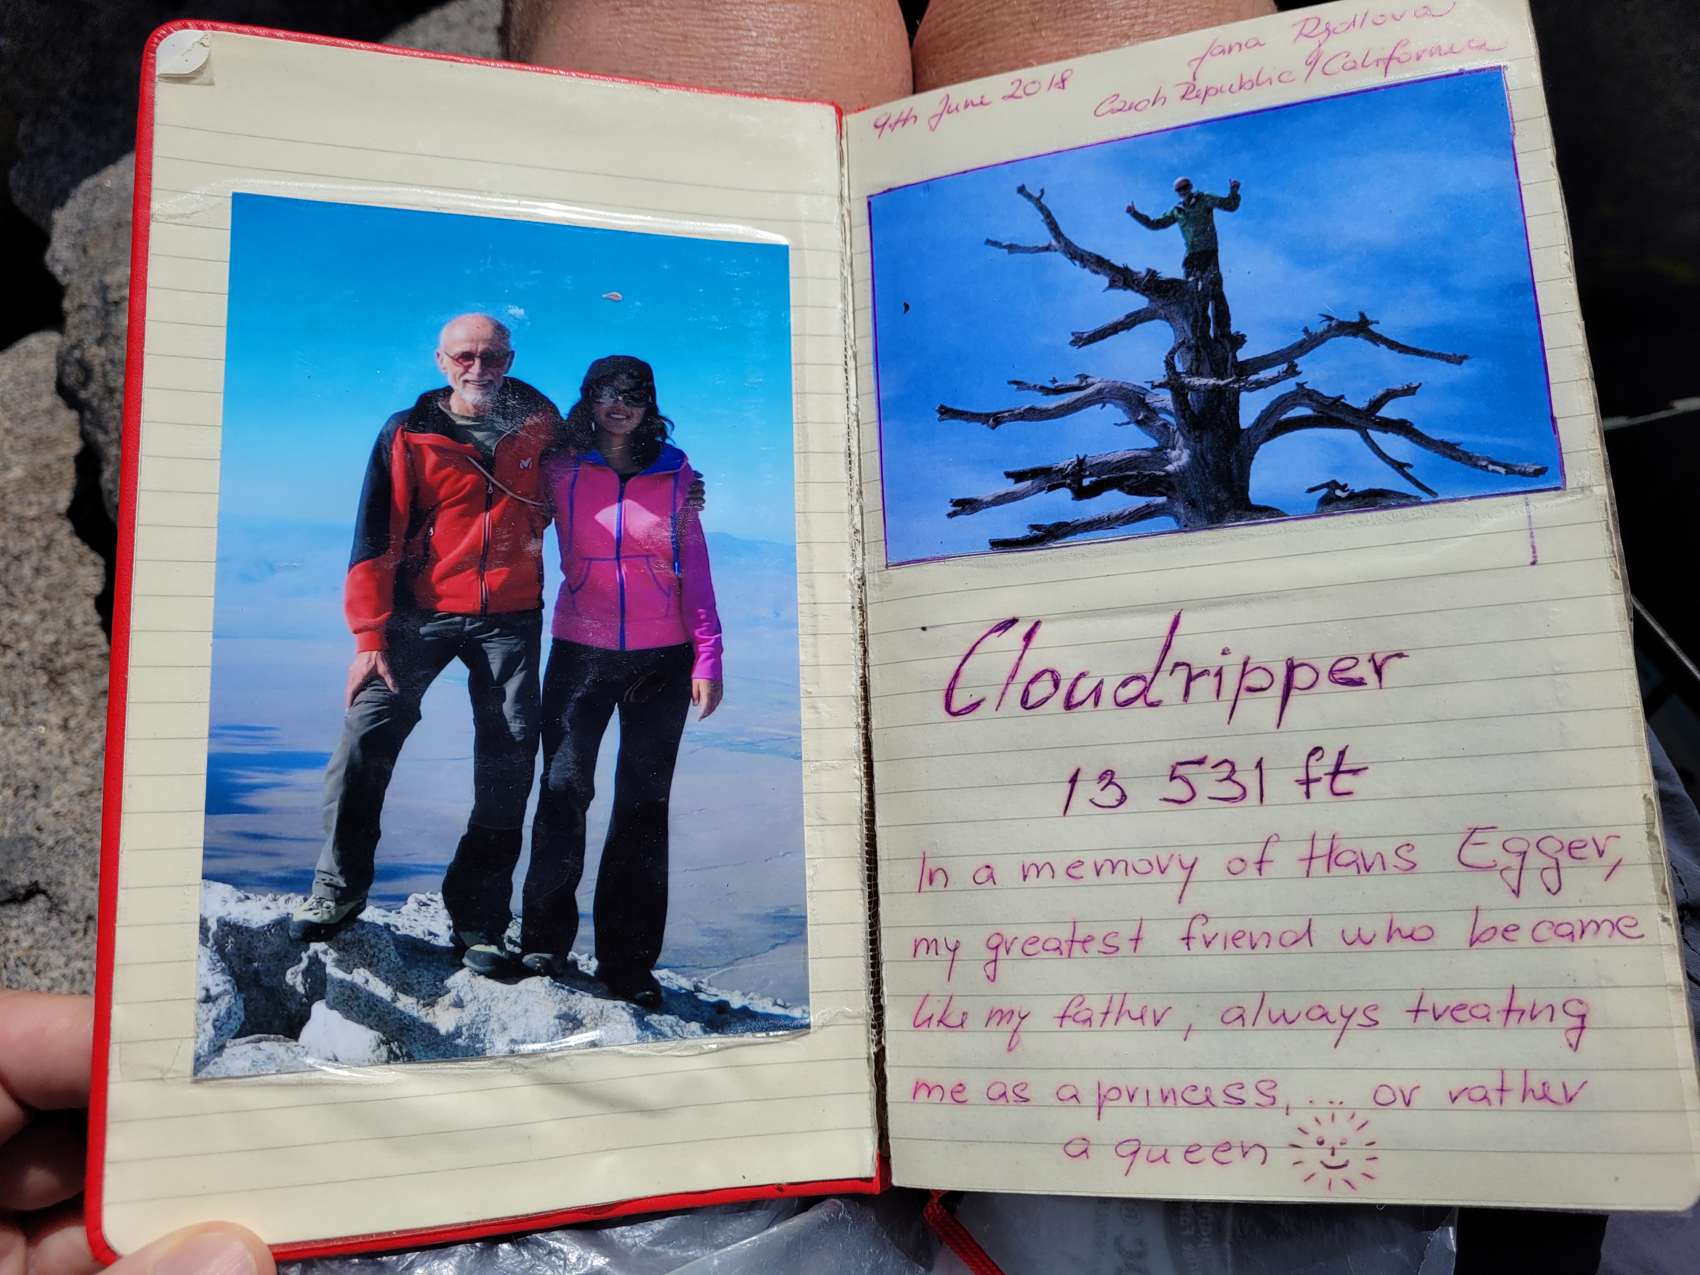 9th June 2018
Jana
Czech Republic / California
Cloudripper
13 531 ft
In a memory of Hans Egger,
my greatest friend who became
like my father, always treating
me as a princess, ... or rather
a queen